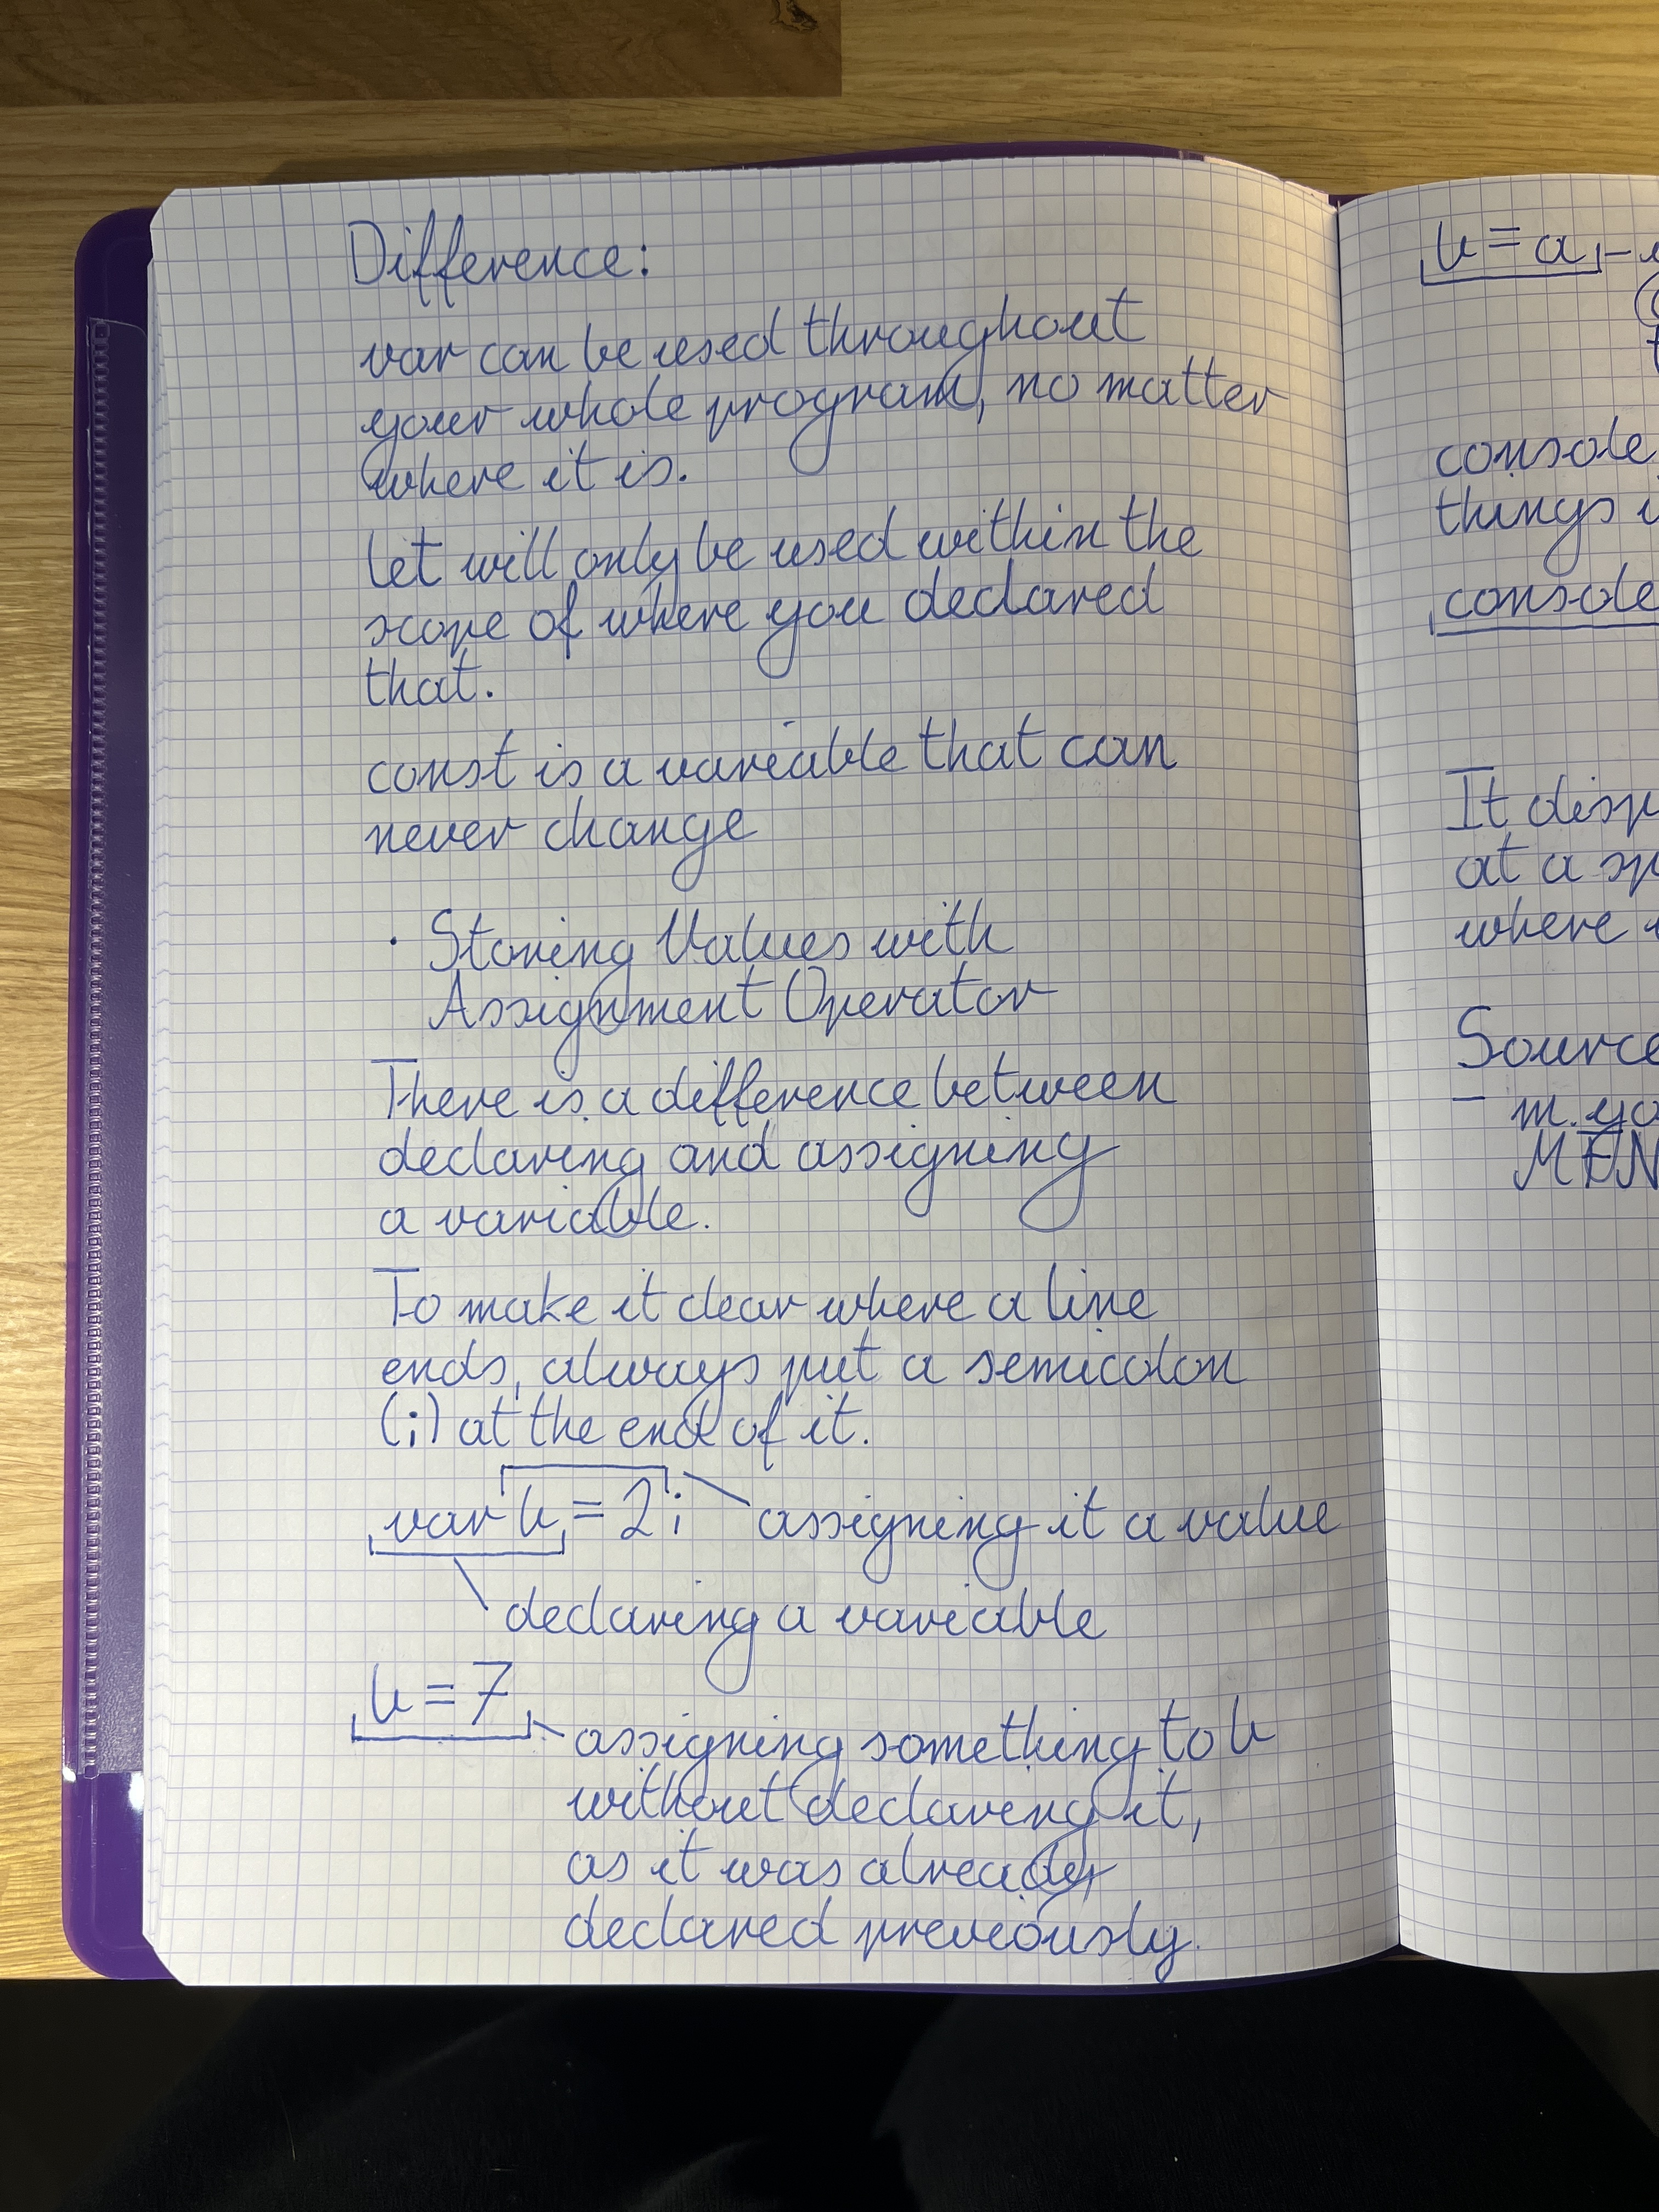 Difference:
var can be used throughout
your whole program, no matter
where it is.
let will only be used within the
scope of where you declared
that.
const is a variable that can
never change
· Storing Values with
Assignment Operator
There is a difference between
declaring and assigning
a variable.
To make it clear where a line
ends, always put a semicolon
(;) at the end of it.
var b = 2; assigning it a value
declaring a variable
b = 7
assigning something to b
without declaring it,
as it was already
declared previously.
b = a
console
things
console
It disp
at a sp
where
Source
-